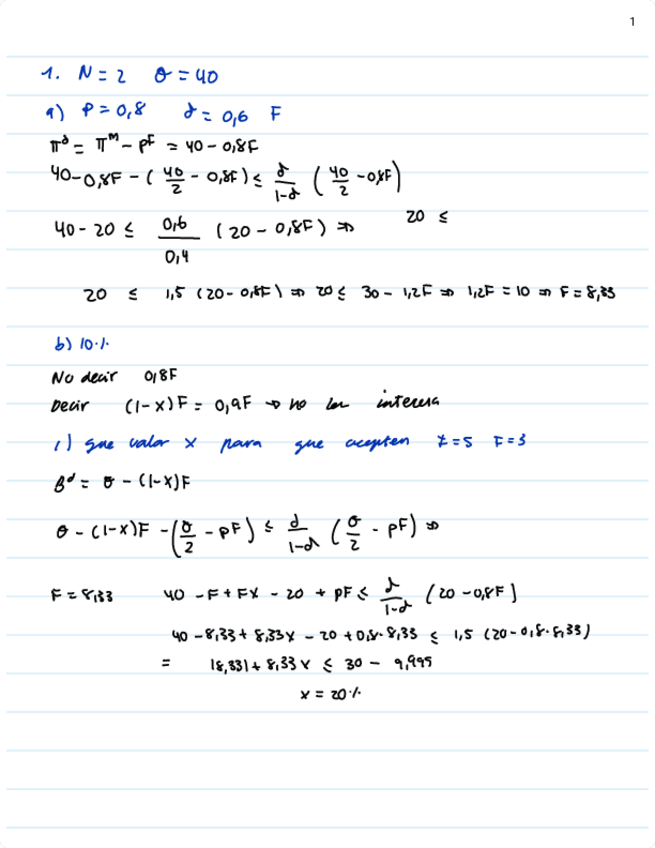 1
1. N = 2 θ = 40
a) P = 0,8 δ = 0,6 F
π^d = π^m - pF = 40 - 0,8F
40 - 0,8F - (40/2 - 0,8F) ≤ δ/(1-δ) (40/2 - 0,8F)
40 - 20 ≤ 0,6/0,4 (20 - 0,8F) ⇒ 20 ≤
20 ≤ 1,5 (20 - 0,8F) ⇒ 20 ≤ 30 - 1,2F ⇒ 1,2F = 10 ⇒ F = 8,33
b) 10%
No decir 0,8F
Decir (1-x)F = 0,9F → no les interesa
1) que valor x para que acepten Z=5 F=3
B^d = θ - (1-x)F
θ - (1-x)F - (θ/2 - pF) ≤ δ/(1-δ) (θ/2 - pF) ⇒
F = 8,33 40 - F + FX - 20 + pF ≤ δ/(1-δ) (20 - 0,8F)
40 - 8,33 + 8,33x - 20 + 0,8·8,33 ≤ 1,5 (20 - 0,8·8,33)
= 18,331 + 8,33x ≤ 30 - 9,995
x = 20%